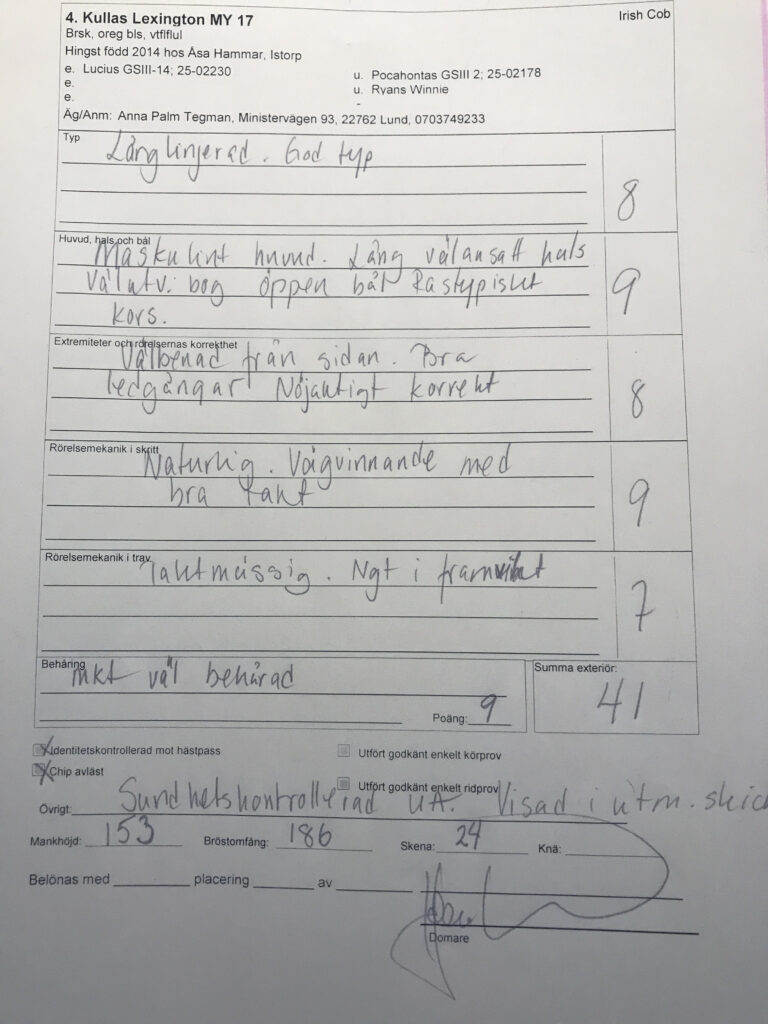 4. Kullas Lexington MY 17
Irish Cob
Brsk, oreg bls, vtflflul
Hingst född 2014 hos Åsa Hammar, Istorp
e. Lucius GSIII-14; 25-02230
u. Pocahontas GSIII 2; 25-02178
e.
u. Ryans Winnie
e.
-
Äg/Anm: Anna Palm Tegman, Ministervägen 93, 22762 Lund, 0703749233
Typ
Långlinjerad. God typ
8
Huvud, hals och bål
Maskulint huvud. Lång välansatt hals
Välutv. bog öppen bål Rastypiskt
kors.
9
Extremiteter och rörelsernas korrekthet
Välbenad från sidan. Bra
ledgångar Nöjaktigt korrekt
8
Rörelsemekanik i skritt
Naturlig. Vägvinnande med
bra takt
9
Rörelsemekanik i trav
Taktmässig. Ngt i
7
Behåring
mkt väl behårad
Poäng: 9
Summa exteriör:
41
Identitetskontrollerad mot hästpass
Utfört godkänt enkelt körprov
Chip avläst
Utfört godkänt enkelt ridprov
Övrigt: Sundhetskontrollerad UA. Visad i utm. skic
Mankhöjd: 153 Bröstomfång: 186 Skena: 24 Knä:
Belönas med placering av
Domare